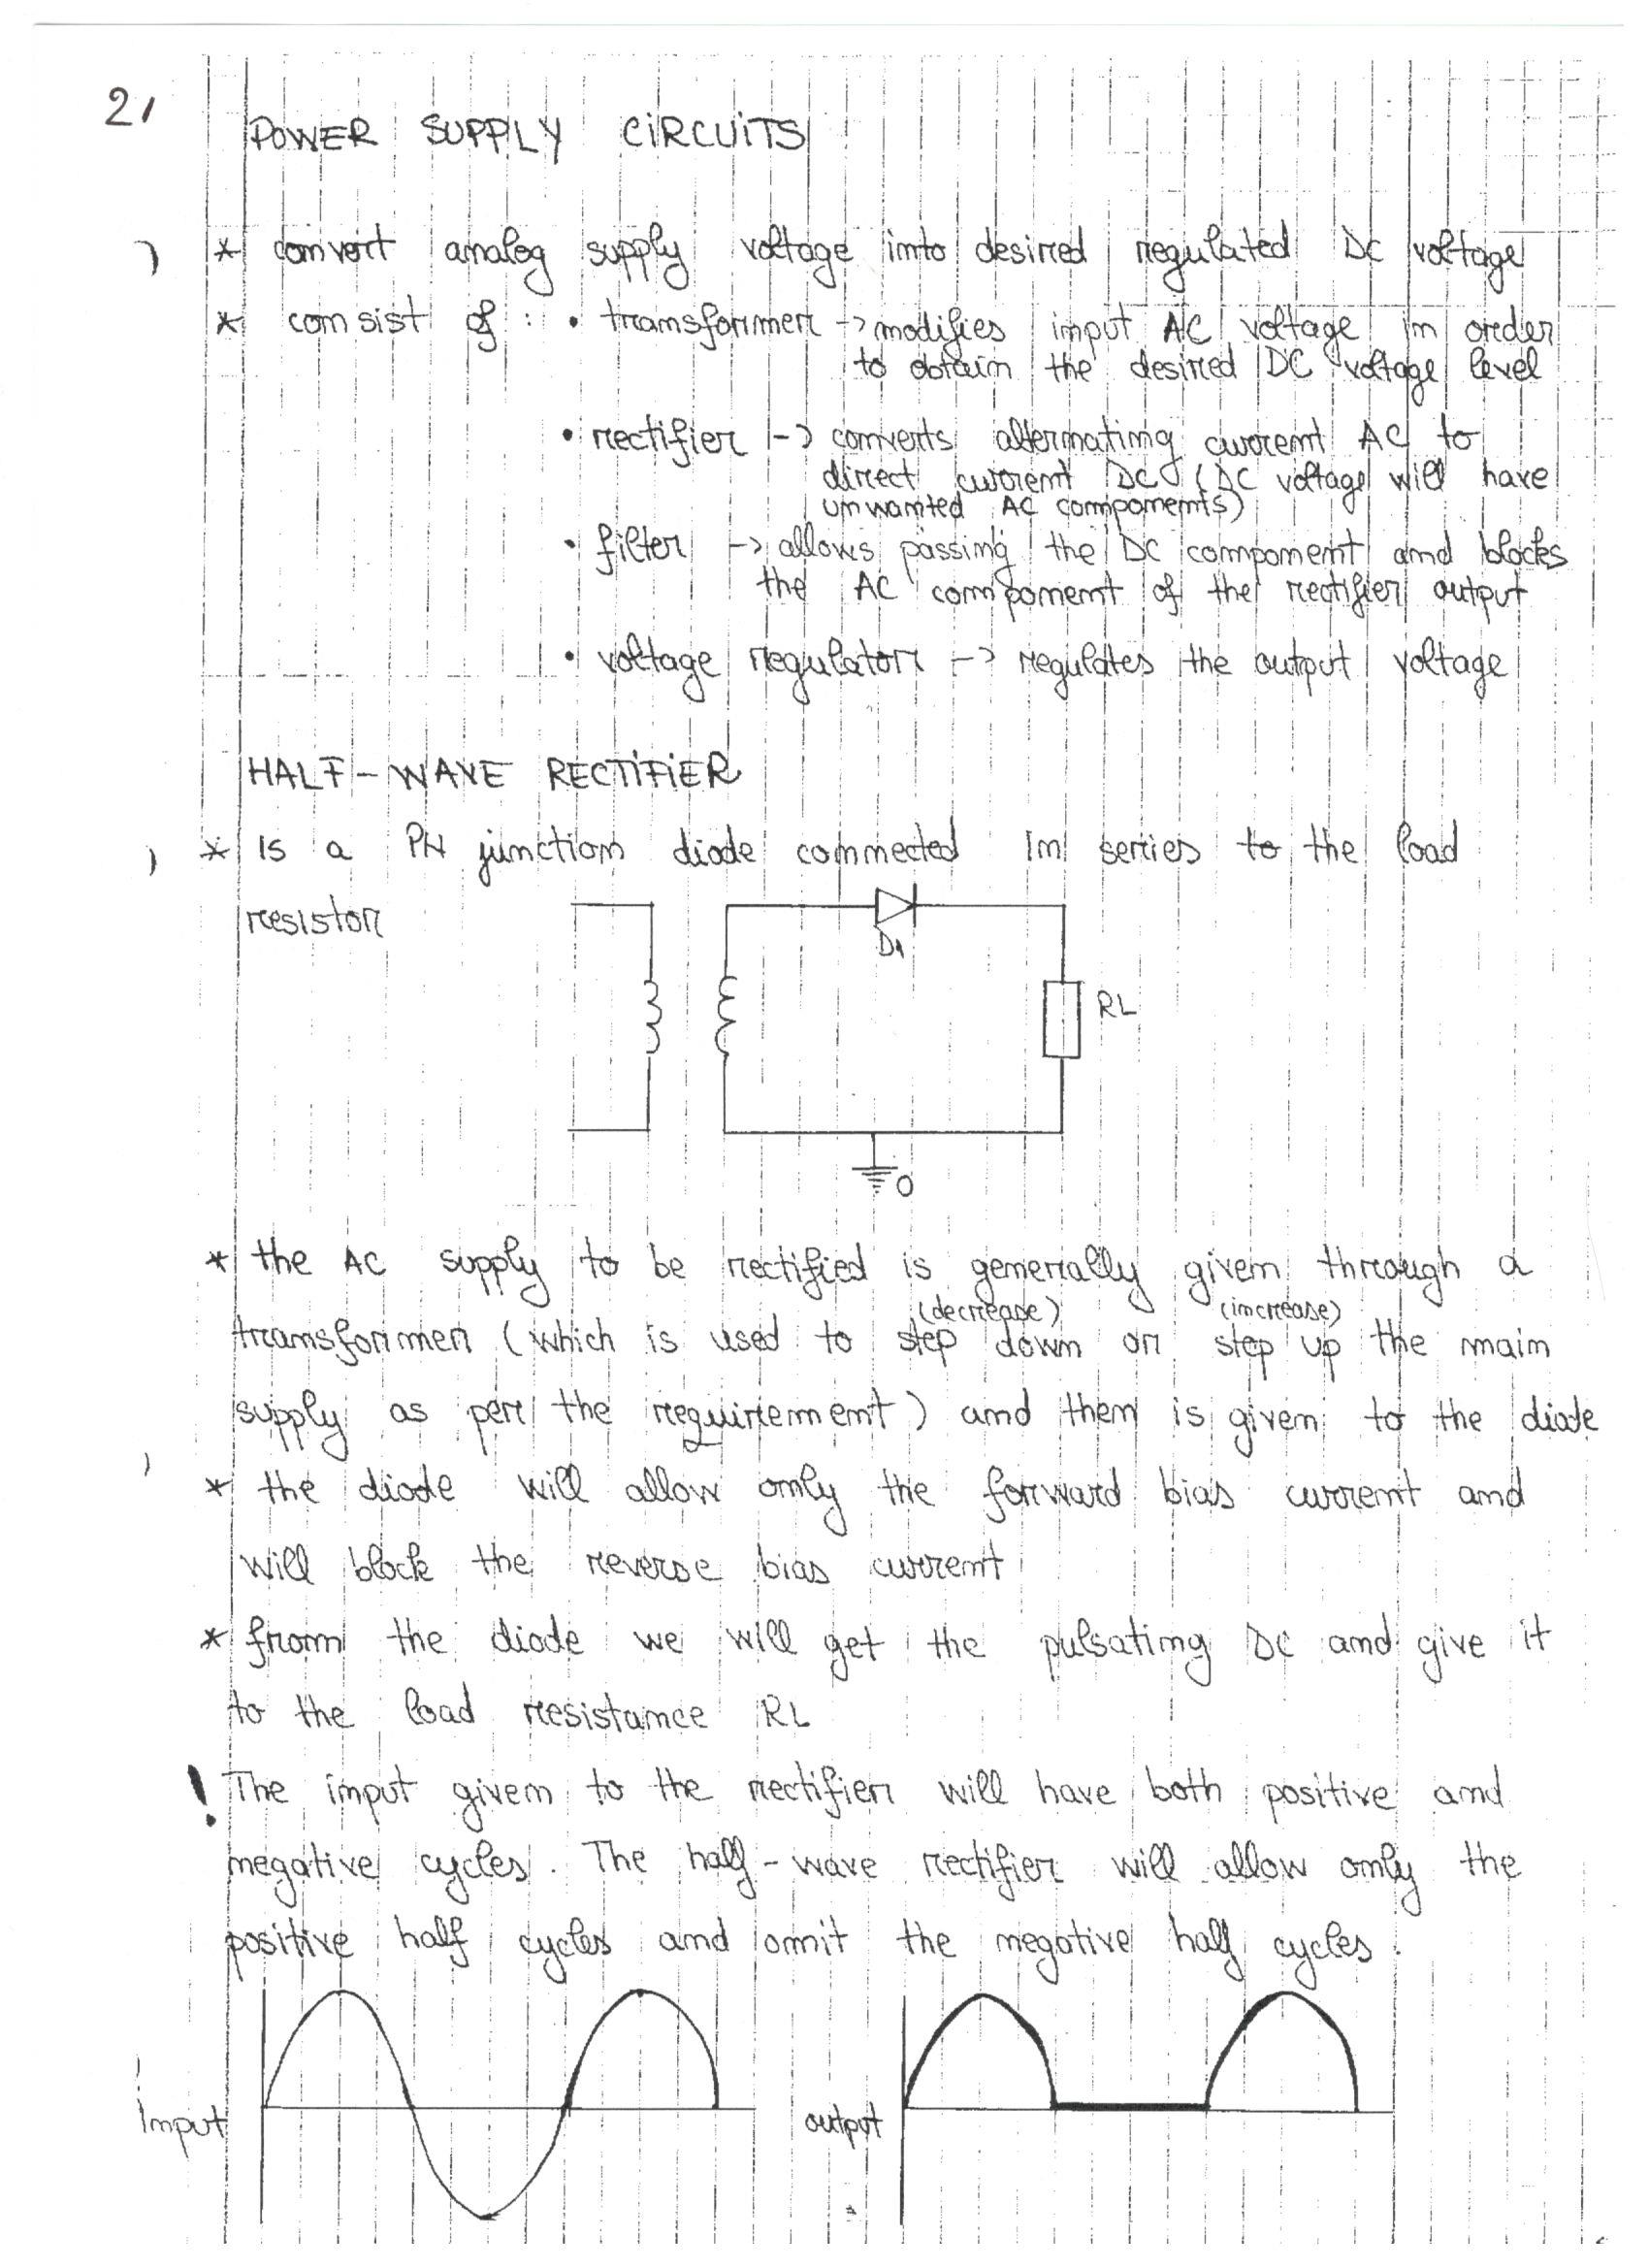 21
POWER SUPPLY CIRCUITS
* convert analog supply voltage into desired regulated DC voltage
* consist of : • transformer -> modifies input AC voltage in order
to obtain the desired DC voltage level
• rectifier -> converts alternating current AC to
direct current DC (DC voltage will have
unwanted AC components)
• filter -> allows passing the DC component and blocks
the AC component of the rectifier output
• voltage regulator -> regulates the output voltage
HALF-WAVE RECTIFIER
* is a PN junction diode connected in series to the load
resistor
D1
RL
0
* the AC supply to be rectified is generally given through a
(decrease) (increase)
transformer (which is used to step down or step up the main
supply as per the requirement) and then is given to the diode
* the diode will allow only the forward bias current and
will block the reverse bias current
* from the diode we will get the pulsating DC and give it
to the load resistance RL
! The input given to the rectifier will have both positive and
negative cycles. The half-wave rectifier will allow only the
positive half cycles and omit the negative half cycles.
Input
output